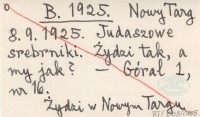 o B. 1925. Nowy Targ
8.9.1925. Judaszowe
srebrniki. Żydzi tak, a
my jak? — Góral 1,
nr 16.
Żydzi w Nowym Targu